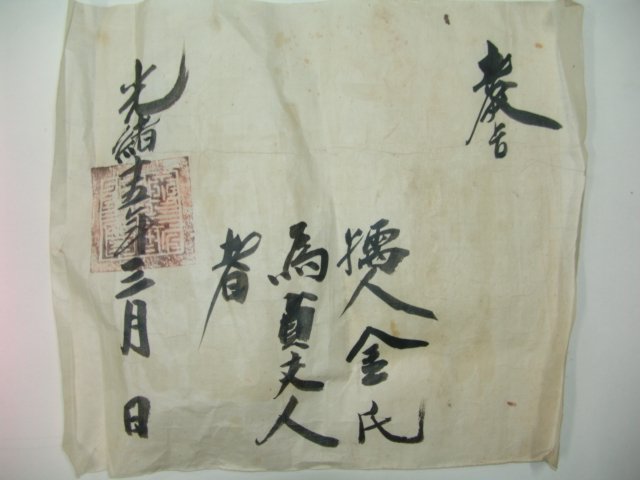 敎旨
孺人金氏
爲貞夫人
者
光緖十五年三月 日